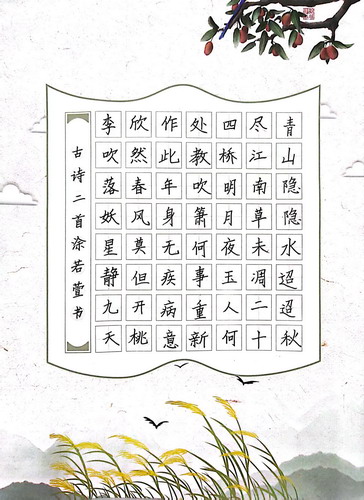 青山隐隐水迢迢秋
尽江南草未凋二十
四桥明月夜玉人何
处教吹箫何事重新
作此年身无疾病意
欣然春风莫但开桃
李吹落妖星静九天
古诗二首涂若萱书